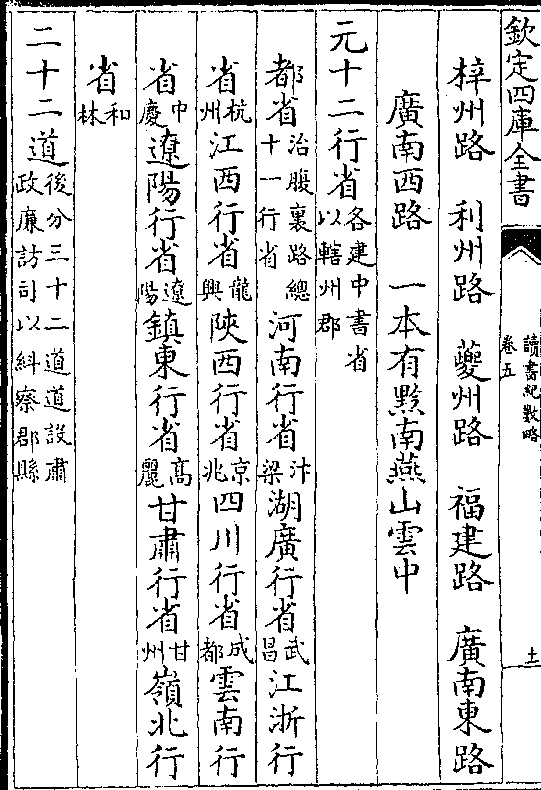 欽定四庫全書
讀書紀數略
卷五
十一
梓州路 利州路 夔州路 福建路 廣南東路
廣南西路 一本有黔南燕山雲中
元十二行省各建中書省以轄州郡
都省治腹裏路總十一行省河南行省汴梁湖廣行省武昌江浙行
省杭州江西行省龍興陝西行省京兆四川行省成都雲南行
省中慶遼陽行省遼陽鎮東行省高麗甘肅行省甘州嶺北行
省和林
二十二道後分三十二道道設肅政廉訪司以糾察郡縣